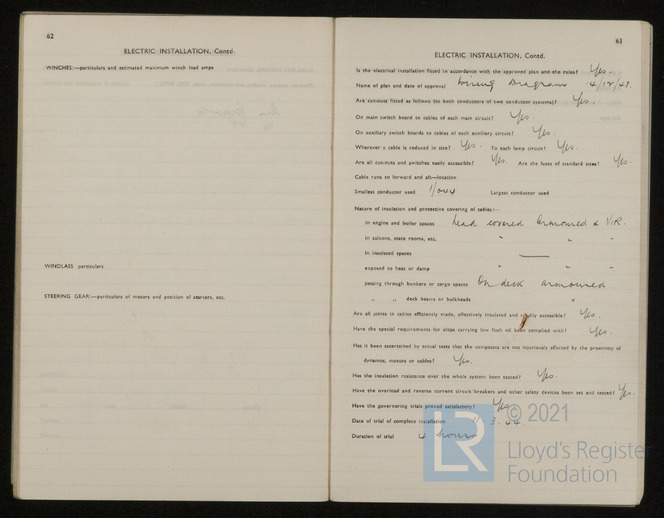 62
ELECTRIC INSTALLATION, Contd.
WINCHES:—particulars and estimated maximum winch load amps
WINDLASS particulars
STEERING GEAR:—particulars of motors and position of starters, etc.
63
ELECTRIC INSTALLATION, Contd.
Is the electrical installation fitted in accordance with the approved plan and the rules? Yes.
Name of plan and date of approval Wiring Diagram 4/12/43.
Are cut-outs fitted as follows (to both conductors of two conductor systems)? Yes.
On main switch board to cables of each main circuit? Yes.
On auxiliary switch boards to cables of each auxiliary circuit? Yes.
Wherever a cable is reduced in size? Yes. To each lamp circuit? Yes.
Are all cut-outs and switches easily accessible? Yes. Are the fuses of standard sizes? Yes.
Cable runs to forward and aft—location
Smallest conductor used 1/044 Largest conductor used
Nature of insulation and protective covering of cables:—
in engine and boiler spaces Lead covered armoured & V.I.R.
in saloons, state rooms, etc. " " "
in insulated spaces —
exposed to heat or damp " " "
passing through bunkers or cargo spaces On deck armoured
" " deck beams or bulkheads "
Are all joints in cables efficiently made, effectively insulated and readily accessible? Yes.
Have the special requirements for ships carrying low flash oil been complied with? Yes.
Has it been ascertained by actual tests that the compasses are not injuriously affected by the proximity of
dynamos, motors or cables? Yes.
Has the insulation resistance over the whole system been tested? Yes.
Have the overload and reverse current circuit breakers and other safety devices been set and tested? Yes.
Have the governoring trials proved satisfactory? Yes
Date of trial of complete installation 3.44
Duration of trial 4 hours
LR
© 2021
Lloyd's Register
Foundation